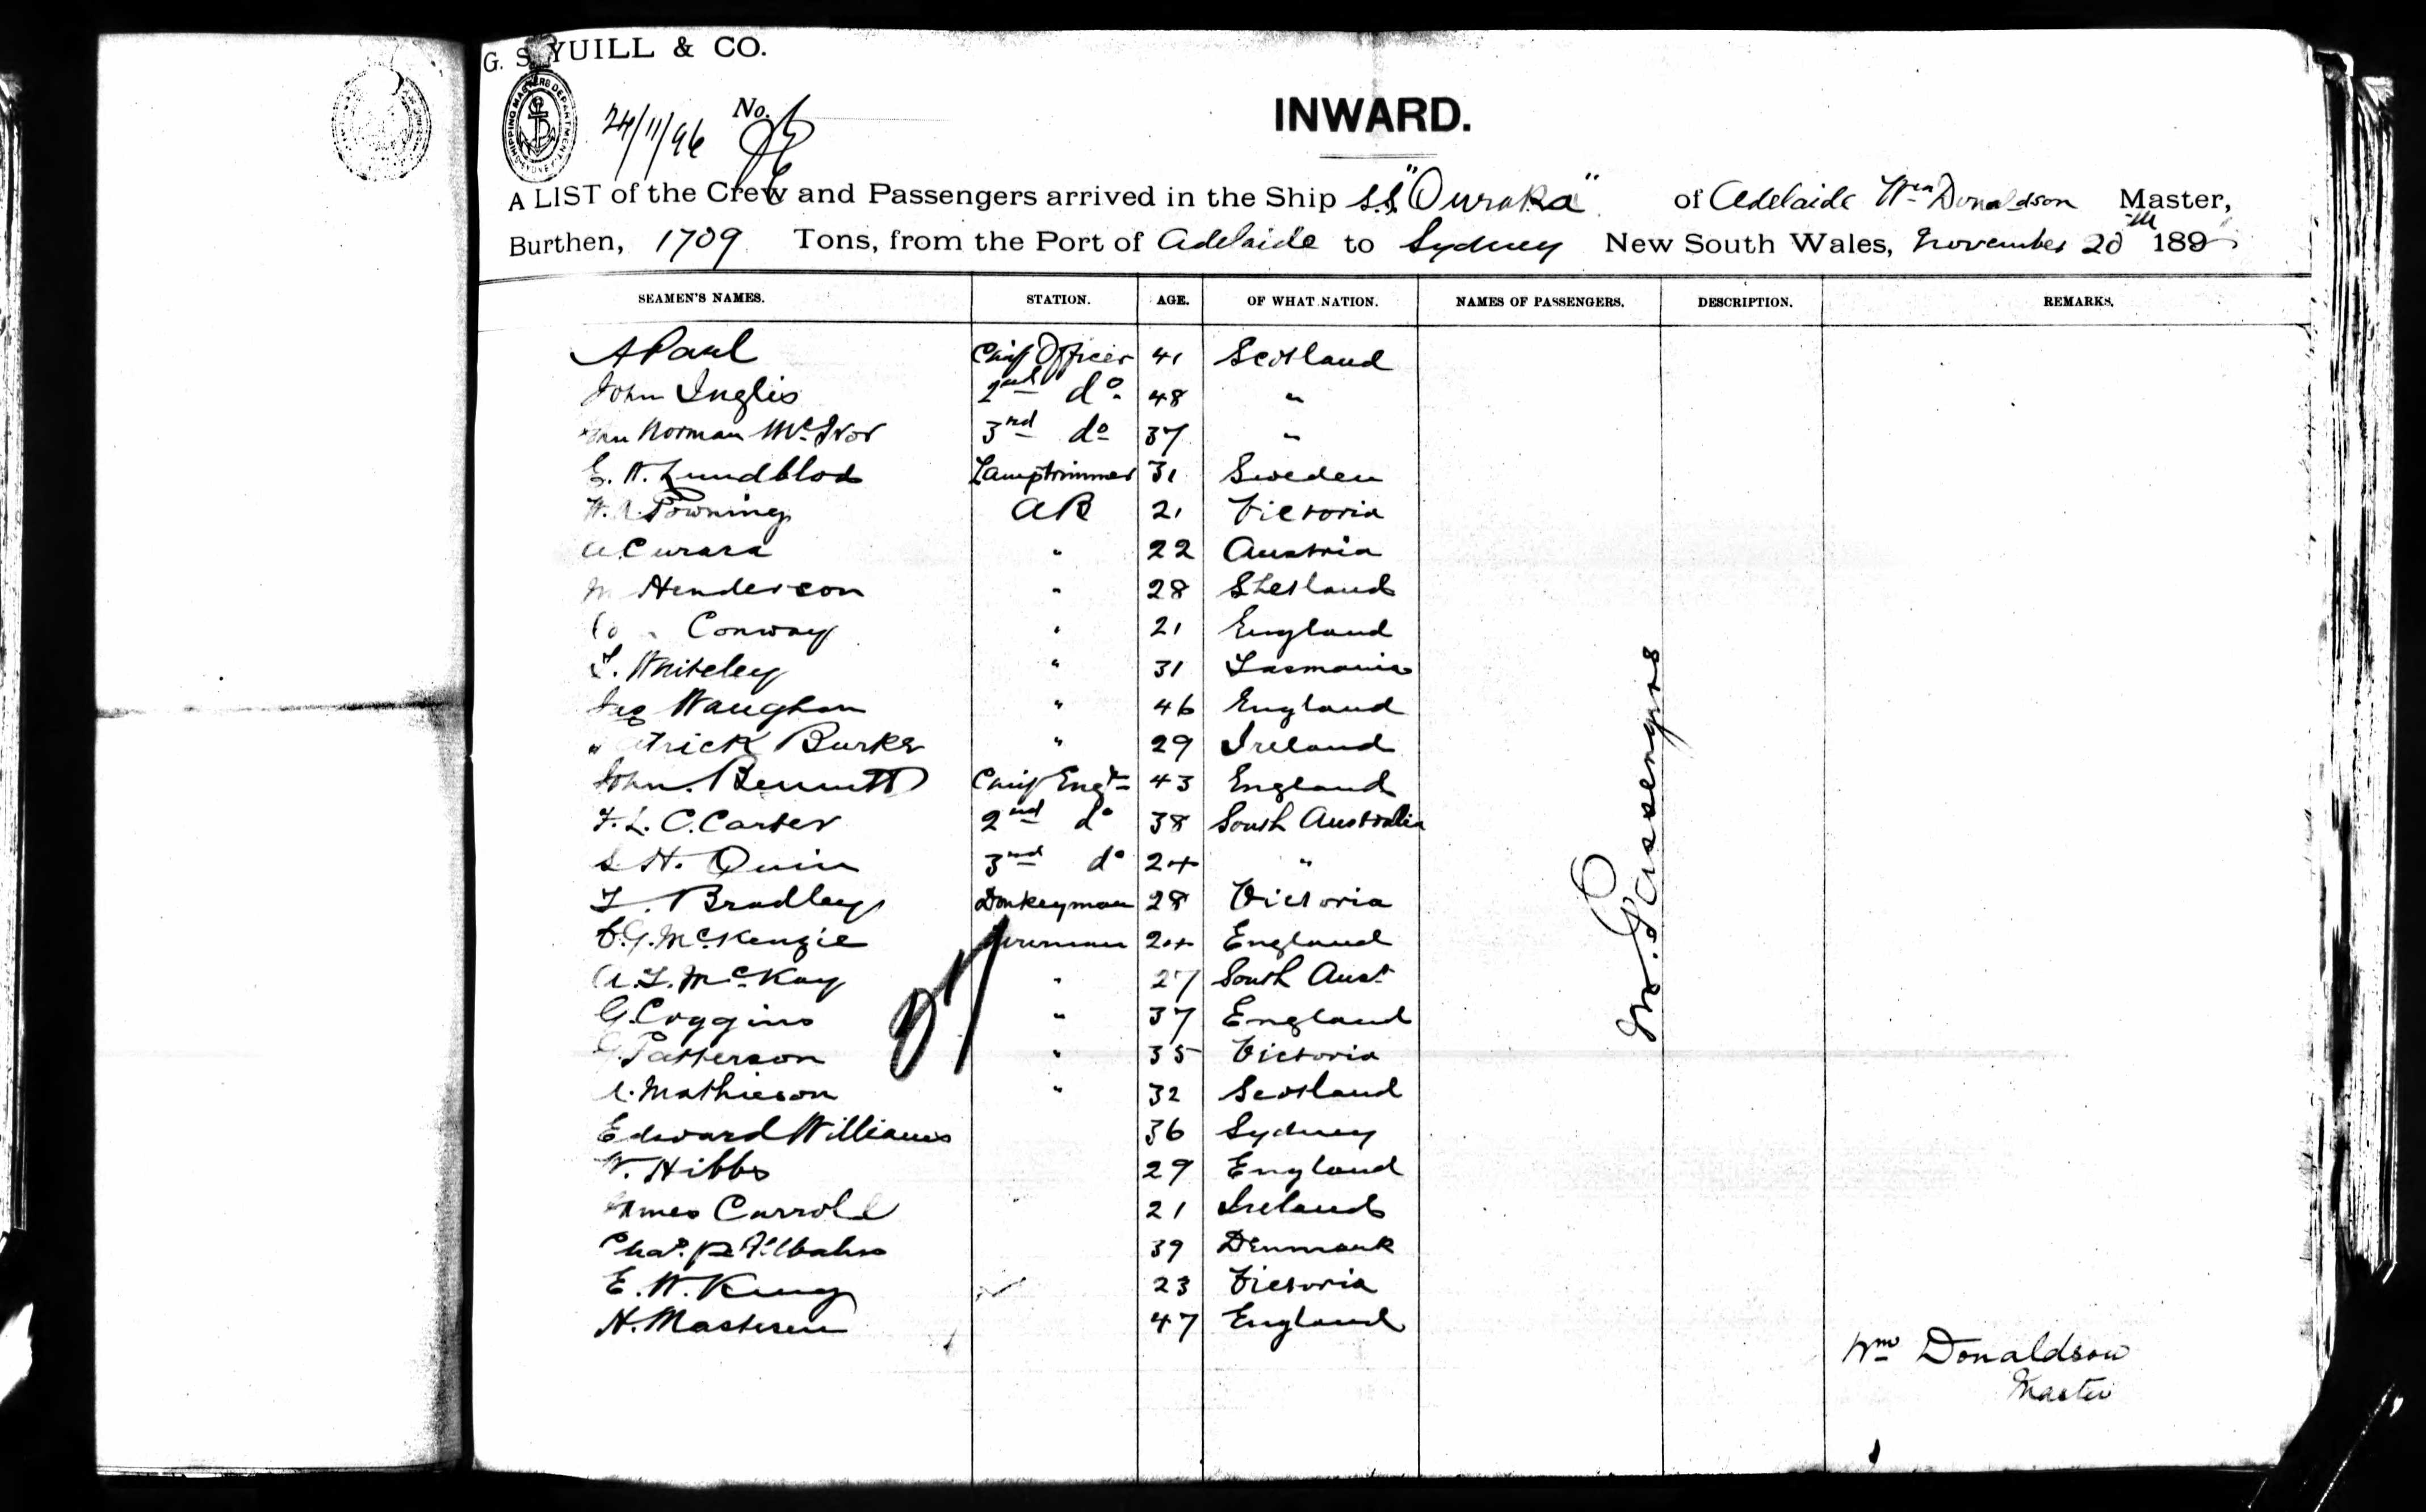 G. S. YUILL & CO.
SHIPPING MASTERS DEPARTMENT SYDNEY
24/11/96 No.
INWARD.
A LIST of the Crew and Passengers arrived in the Ship S.S. "Ouraka" of Adelaide Wm Donaldson Master,
Burthen, 1709 Tons, from the Port of Adelaide to Sydney New South Wales, November 20th 189
SEAMEN'S NAMES. STATION. AGE. OF WHAT NATION. NAMES OF PASSENGERS. DESCRIPTION. REMARKS.
A Paul Chief Officer 41 Scotland
John Inglis 2nd do. 48 "
Norman McIvor 3rd do 37 "
E. W. Lundblod Lamptrimmer 31 Sweden
W. A. Powning AB 21 Victoria
A. Curara " 22 Austria
Henderson " 28 Shetland
Conway " 21 England
T. Whiteley " 31 Tasmania
Jas Waughan " 46 England
Patrick Burke " 29 Ireland
John Bennett Chief Engr 43 England
F. L. C. Carter 2nd do 38 South Australia
S H. Quin 3rd do 24 "
T. Bradley Donkeyman 28 Victoria
C. G. McKenzie Fireman 24 England
A. L. McKay " 27 South Aust
G. Coggins " 37 England
G. Patterson " 35 Victoria
A. Mathieson " 32 Scotland
Edward Williams 36 Sydney
W. Hibbs 29 England
James Carroll 21 Ireland
Chas. 39 Denmark
E. W. King 23 Victoria
H. Mastern 47 England
27
No Passengers
Wm Donaldson
Master